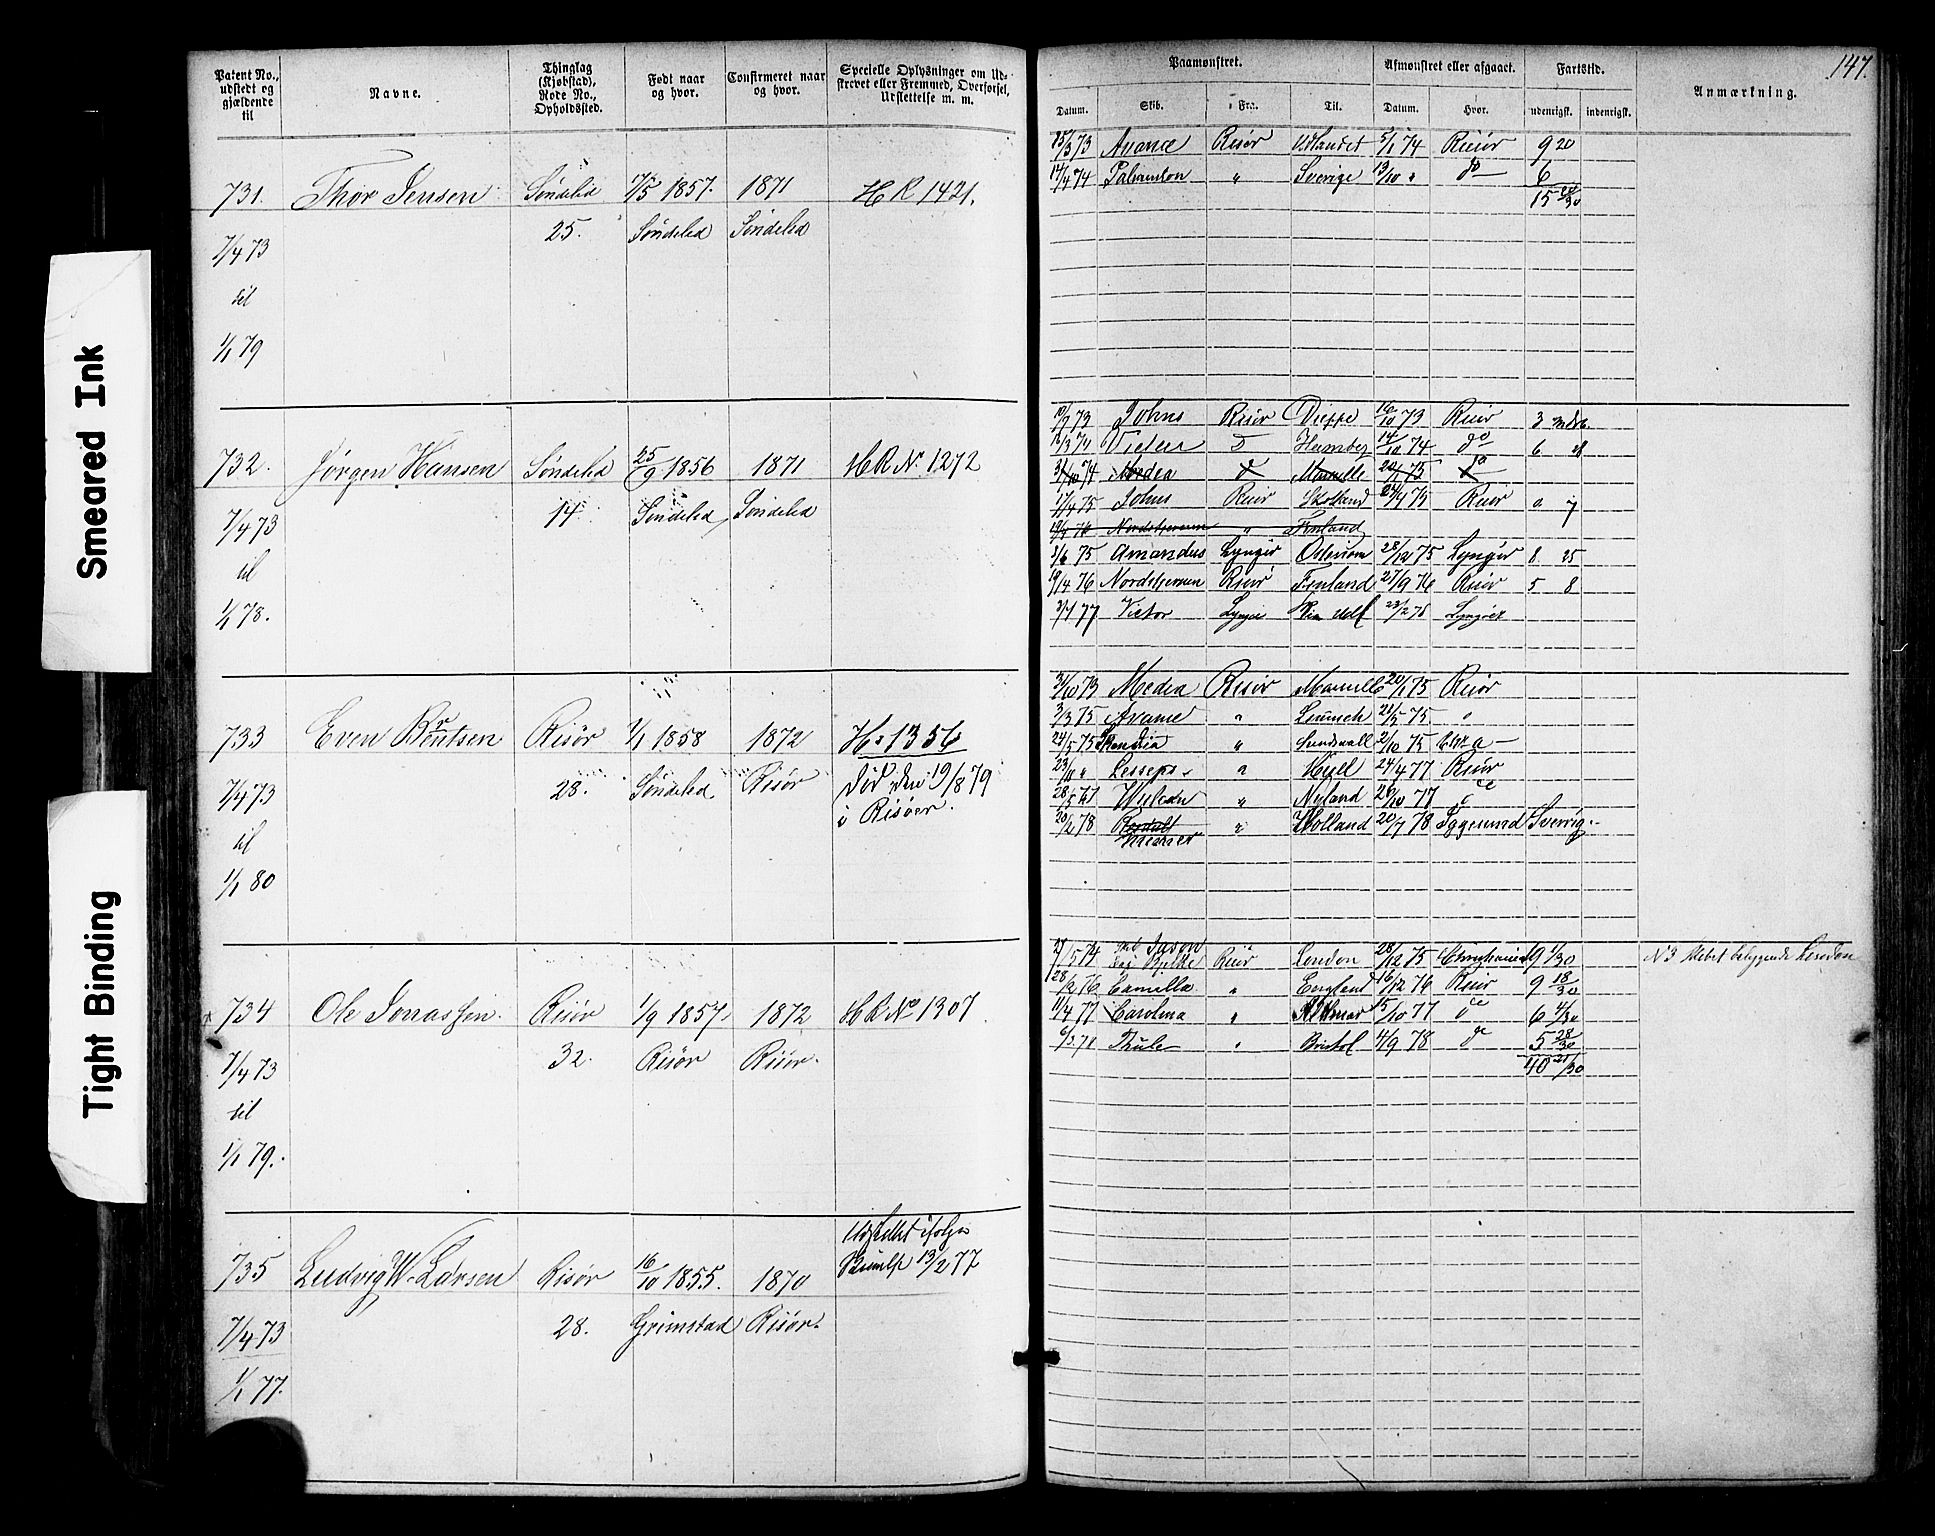 Smeared Ink
Tight Binding
147.
Patent No., udstedt og gjældende til
Navne.
Thinglag (Kjøbstad), Rode No., Opholdssted.
Født naar og hvor.
Confirmeret naar og hvor.
Specielle Oplysninger om Udskrevet eller Fremmed, Overførsel, Udslettelse m. m.
Paamønstret.
Afmønstret eller afgaaet.
Fartstid.
Anmærkning.
Datum. Skib. Fra. Til. Datum. Hvor. udenrigst. indenrigst.
731. Thor Jensen Søndeled 7/5 1857. 1871 HR 1421.
25. Søndeled Søndeled
7/4 73
til
1/1 79
25/3 73 Avance Risør Udlandet 5/1 74 Risør 9 20
14/4 74 " Sverige 13/10 " do 6
15 20/30
732. Jørgen Hansen Søndeled 25/9 1856 1871 HR No 1272
14 Søndeled Søndeled
7/4 73
til
1/1 78.
10/9 73 Johns Risør Dieppe 16/10 73 Risør 3 mdr
14/10 74 do 6
31/10 74 Medea 20/1 75 do
17/4 75 Johns Risør Skotland Risør 7
Nordstjernen " Finland
75 Amandus Lyngør 28/12 75 Lyngør 8. 25
19/4 76 Nordstjernen Risør Finland 27/9 76 Risør 5 8
77 Victor 23/2 78 Lyngør
733 Even Berntsen Risør 1/1 1858 1872 H. 1356
28. Søndeled Risør Død den 19/8 79
i Risøer.
7/4 73
til
1/1 80
31/10 73 Medea Risør 20/1 75 Risør
3/3 75 Avance " 21/5 75 "
24/5 75 Skandia " Sundsvall 2/10 75
23/10 " Lesseps " Hull 24/4 77 Risør
28/5 77 " Nyland 26/10 77 do
20/2 78 " Holland 20/7 78 Iggesund Sverig.
734 Ole Jonassen. Risør 1/9 1857. 1872 HR No 1307
32. Risør Risør.
7/4 73
til
1/1 79.
Jason Risør London 28/12 75 19 1/30
28/2 76 Camilla " England 16/12 76 Risør 9 18/30
11/4 77 Carolina " 15/10 77 do 6 4/30
Thule " Bristol 4/9 78 do 5 28/30
40 21/30
735 Ludvig W. Larsen Risør 16/10 1855. 1870 Udslettet ifølge
13/2 77
28. Grimstad Risør.
7/4 73
1/1 77.